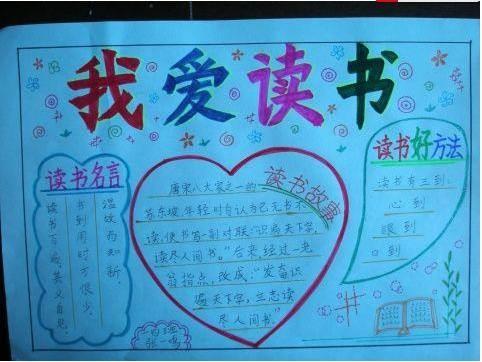 我爱读书
读书名言
温故而知新。
书到用时方恨少。
读书百遍，其义自见。
读书故事
唐宋八大家之一的
苏东坡，年轻时自认为已无书不
读，便书写一副对联：“识遍天下字，
读尽人间书。”后来，经过一老
翁指点，改成：“发奋识
遍天下字，立志读
尽人间书。”
读书好方法
读书有三到：
心到
眼到
口到
张一鸣